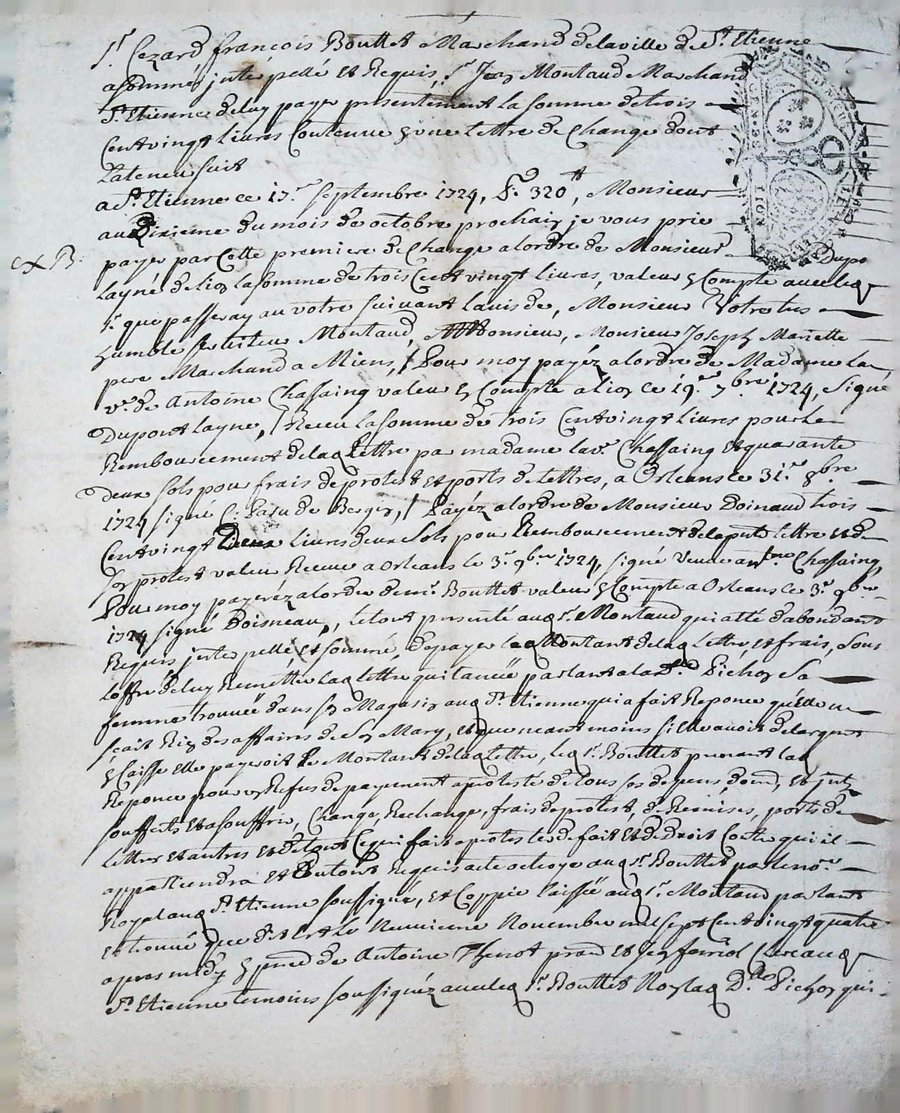 Sr. Cezard françois Bouttet Marchand delaville de St. Etienne
asommé jnterpellé et Requis, Sr. Jean Montaud Marchand
St. Etienne deluy payer presentement la somme de trois
Cent vingt livres Contenue en une lettre de Change dont
Lateneur suit
a St. Etienne ce 17e. septembre 1724, P. 320 tt, Monsieur
au Dixieme du mois de octobre prochain je vous prie
payer par Cette premiere de Change alordre de Monsieur Dupon
Layné de lion la somme de trois Cent vingt livres, valeur en Compte aveclesq
Sr. que passeray au votre suivant lavis de, Monsieur Votre tres
humble serviteur Montaud, Monsieur, Monsieur Joseph Mariette
pere Marchand a Miens, / Pour moy payéz alordre de Madame la
ve. de Antoine Chassaing valeur en Compte a lion ce 19e. 7bre. 1724, Signé
Dupont layne, / Receu la somme de trois Cent vingt livres pour le
Remboursement delaq lettre par madame la ve. Chassaing et quarante
Deux sols pour frais de protest et ports de lettres, a Orleans le 31e. 8bre.
1724 signé C. de Berger, / Payéz alordre de Monsieur Doinaud trois
Cent vingt Deux livres deux sols pour Remboursement delapnte lettre et de
son protest valeur Receue a Orleans le 3e. 9bre 1724, signé Veuve antne Chassaing,
Pour moy payeréz alordre de mr. Bouttet valeur en Compte a Orleans ce 3e. 9bre
1724 signé Doisneau, Letout presenté auq Sr. Montaud qui a été dabondant
Requis jnterpellé et sommé depayer leq Montant delaq lettre et frais, sous
loffre deluy Remettre laq lettre quitancée parlant a lad. Dlle Pichon sa
femme trouvée dans son Magasin auq St. Etienne qui a fait Reponce quelle ne
sçait Rien des affaires de son Mary, et que neantmoins sil avoit delargent
en Caisse elle payeroit le Montant delaq lettre, leq Sr. Bouttet prenant laq
Reponce pour un Refus de payement a protesté de tous ses depens, dom, et jntz
soufferts et a souffrir, Change, Rechange, frais de protest, de Remises, ports de
lettres et autres et de tout Ce qui fait a protester de fait et de droit Contre qui il
appartiendra et dutout Requis acte octroyé auq Sr. Bouttet par le nore.
Royal auq St. Etienne soussigné, et Coppie laissée auq Sr. Montaud parlant
et donné que dessus le Neuvieme Novembre mil sept Cent vingt quatre
apres midy en pnce de Antoine Thenot prand et Jean ferriol Clercs auq
St. Etienne temoins soussignéz avecleq Sr. Bouttet Non laq Dlle Pichon qui